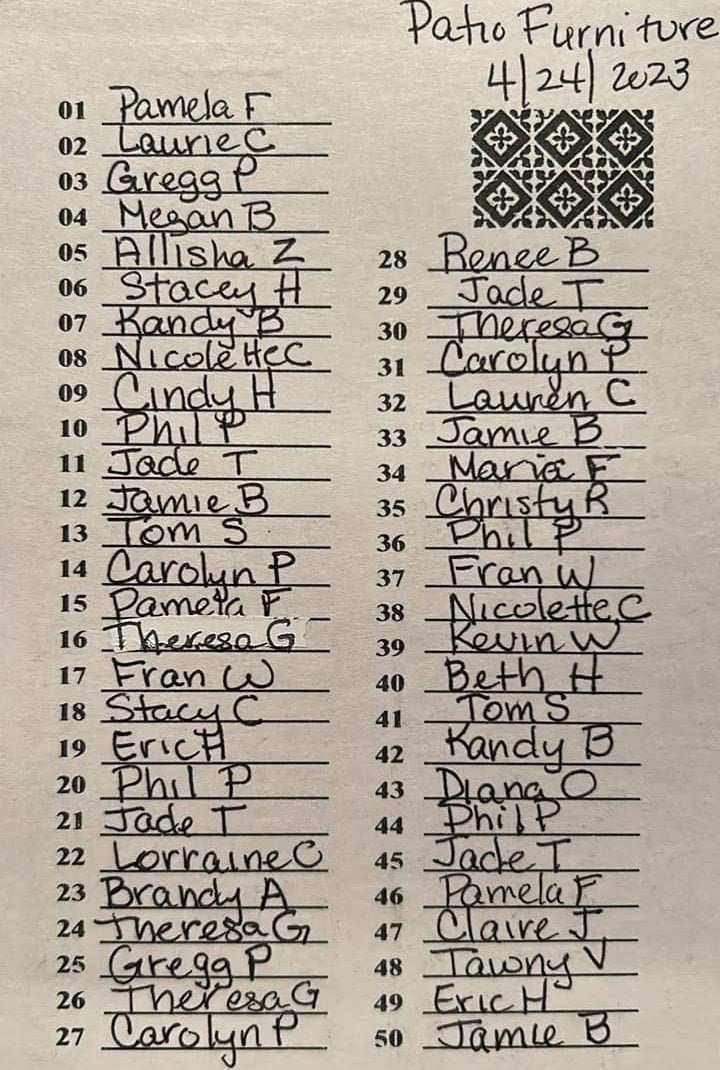 Patio Furniture
4/24/2023
01 Pamela F
02 Laurie C
03 Gregg P
04 Megan B
05 Allisha Z
06 Stacey H
07 Kandy B
08 Nicolette C
09 Cindy H
10 Phil P
11 Jade T
12 Jamie B
13 Tom S
14 Carolyn P
15 Pamela F
16 Theresa G
17 Fran W
18 Stacy C
19 Eric H
20 Phil P
21 Jade T
22 Lorraine C
23 Brandy A
24 Theresa G
25 Gregg P
26 Theresa G
27 Carolyn P
28 Renee B
29 Jade T
30 Theresa G
31 Carolyn P
32 Lauren C
33 Jamie B
34 Maria F
35 Christy R
36 Phil P
37 Fran W
38 Nicolette C
39 Kevin W
40 Beth H
41 Tom S
42 Kandy B
43 Diana O
44 Phil P
45 Jade T
46 Pamela F
47 Claire J
48 Tawny V
49 Eric H
50 Jamie B